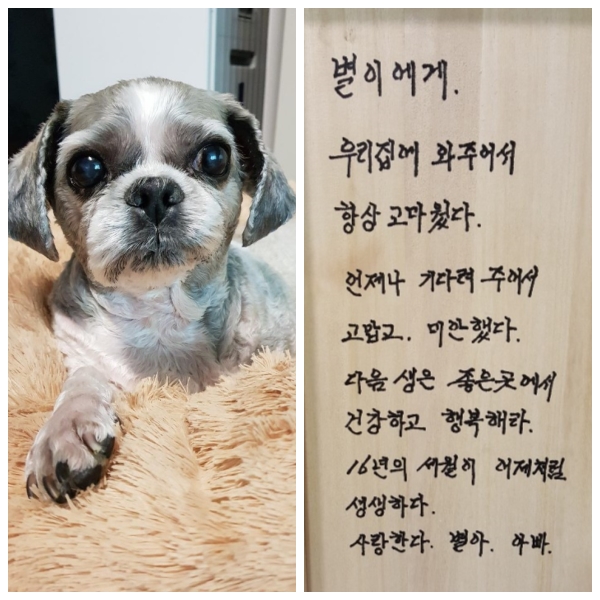 별이에게.
우리집에 와주어서
항상 고마웠다.
언제나 기다려 주어서
고맙고. 미안했다.
다음 생은 좋은곳에서
건강하고 행복해라.
16년의 세월이 어제처럼
생생하다.
사랑한다. 별아. 아빠.